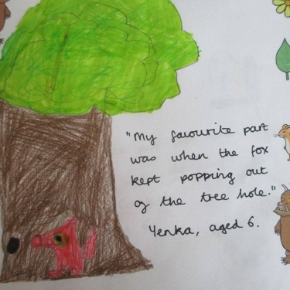 "My favourite part
was when the fox
kept popping out
of the tree hole."
Yenka, aged 6.